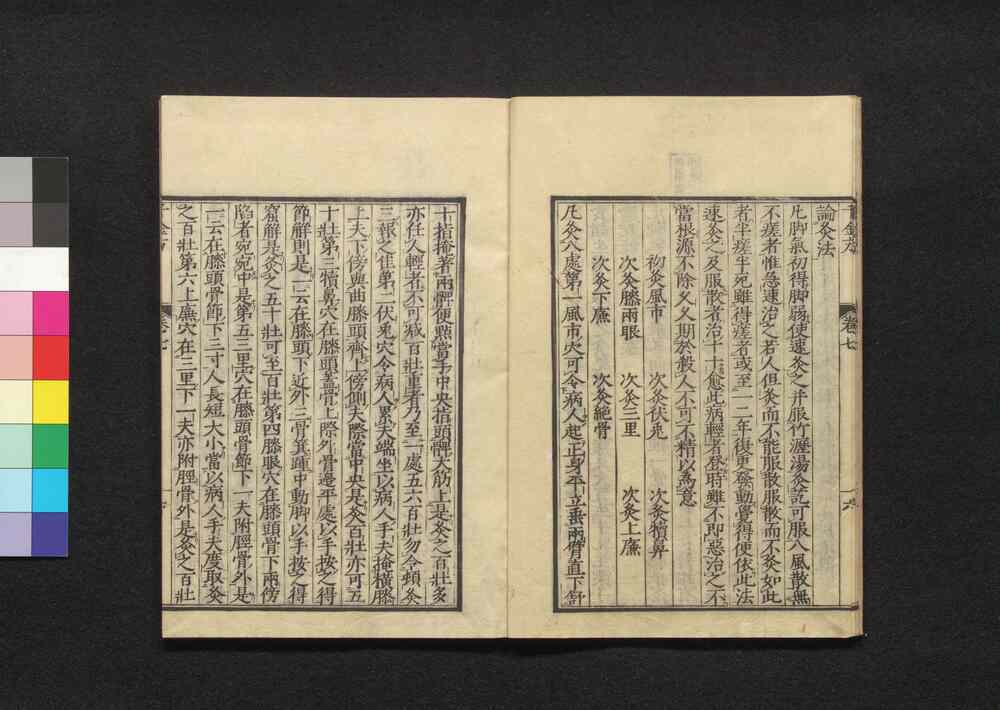 論灸法
凡脚氣初得脚弱使速灸之并服竹瀝湯灸訖可服八風散無
不瘥者惟急速治之若人但灸而不能服散服散而不灸如此
者半瘥半死雖得瘥者或至一二年復更發動覺得便依此法
速灸之及服散者治十十愈此病輕者登時雖不即惡治之不
當根源不除久久期於殺人不可不精以爲意
初灸風市 次灸伏兎 次灸犢鼻
次灸膝兩眼 次灸三里 次灸上廉
次灸下廉 次灸絶骨
凡灸八處第一風市穴可令病人起正身平立垂兩臂直下舒
卷七
六
十指掩著兩髀便點當手中央指頭髀大筋上是灸之百壯多
亦任人輕者不可减百壯重者乃至一處五六百壯勿令頓灸
三報之佳第二伏兎穴令病人累夫端坐以病人手夫掩横膝
上夫下傍與曲膝頭齊上傍側夫際當中央是灸百壯亦可五
十壯第三犢鼻穴在膝頭蓋骨上際外骨邊平處以手按之得
節解則是一云在膝頭下近外三骨箕踵中動脚以手按之得
窟解是灸之五十壯可至百壯第四膝眼穴在膝頭骨下兩傍
陷者宛宛中是第五三里穴在膝頭骨節下一夫附脛骨外是
一云在膝頭骨節下三寸人長短大小當以病人手夫度取灸
之百壯第六上廉穴在三里下一夫亦附脛骨外是灸之百壯